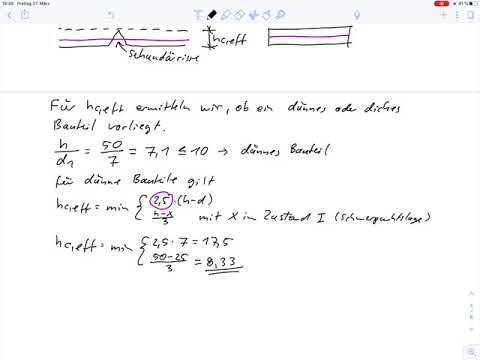 16:30 Freitag 27. März
41 %
Sekundärrisse
hc,eff
Für hc,eff ermitteln wir, ob ein dünnes oder dickes
Bauteil vorliegt.
h/d1 = 50/7 = 7,1 ≤ 10 → dünnes Bauteil
für dünne Bauteile gilt
hc,eff = min { 2,5·(h-d)
h-x/3 mit x in Zustand I (Schwerpunktslage)
hc,eff = min { 2,5·7 = 17,5
50-25/3 = 8,33